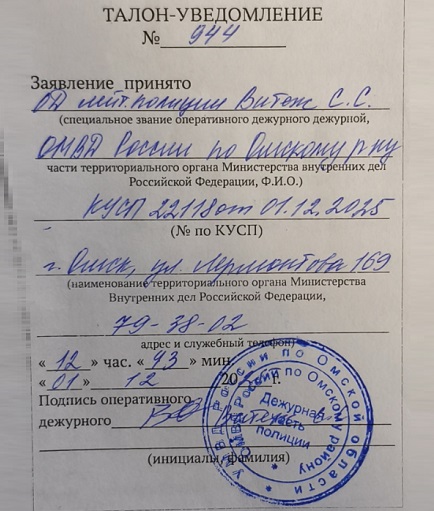 ТАЛОН-УВЕДОМЛЕНИЕ
№ 944
Заявление принято
ОД лейт. полиции Витеж С.С.
(специальное звание оперативного дежурного дежурной,
ОМВД России по Омскому р-ну
части территориального органа Министерства внутренних дел
Российской Федерации, Ф.И.О.)
КУСП 22118 от 01.12.2025
(№ по КУСП)
г. Омск, ул. Лермонтова 169
(наименование территориального органа Министерства
Внутренних дел Российской Федерации,
79-38-02
адрес и служебный телефон)
« 12 » час. « 43 » мин.
« 01 » 12 20 г.
Подпись оперативного
дежурного
(инициалы, фамилия)
УМВД России по Омской области
ОМВД России по Омскому району
Дежурная
часть
полиции